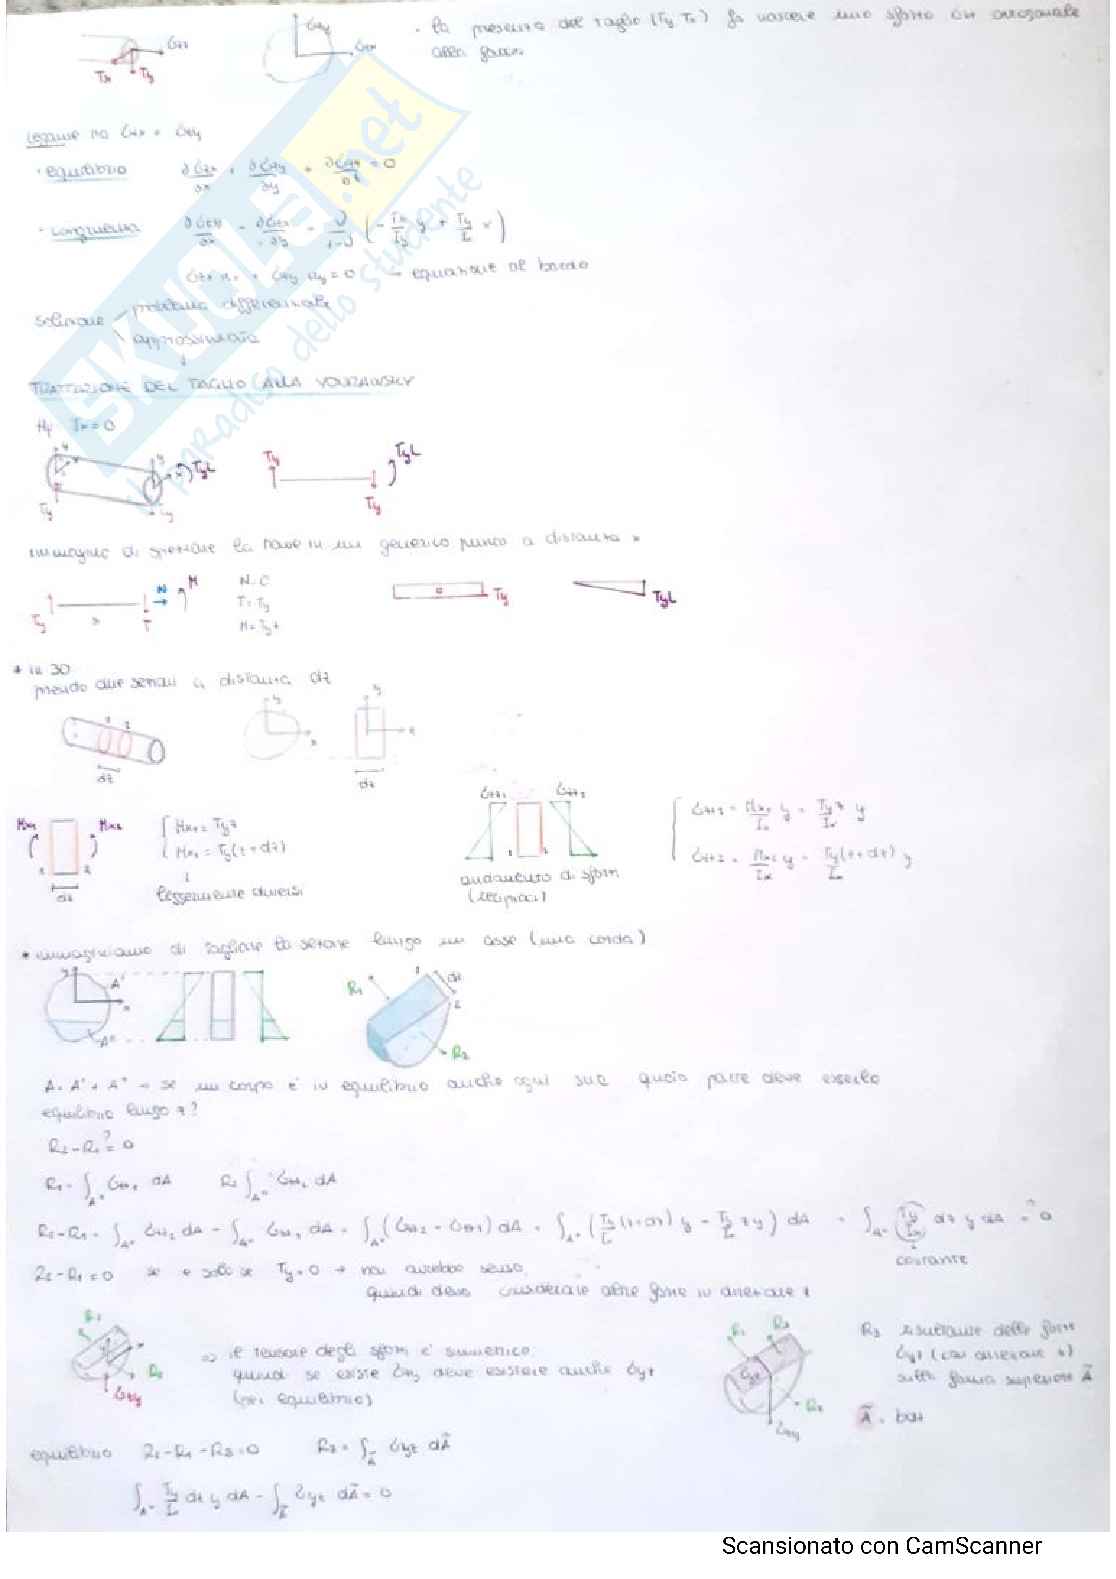 · la presenza del taglio (Ty Tx) fa nascere uno sforzo ortogonale
alla faccia
σzy
σzx
σzx
Tx Ty
Legame tra σzx e σzy
· equilibrio ∂σzx/∂x + ∂σzy/∂y + ∂σzz/∂z = 0
· congruenza ∂σzy/∂x - ∂σzx/∂y = ν/1-ν (- Tx/Iy y + Ty/Ix x)
σzx nx + σzy ny = 0 → equazione al bordo
soluzione problema differenziale
approssimata
TRATTAZIONE DEL TAGLIO ALLA JOURAWSKY
Hp Tx = 0
Ty Ty TyL
Ty Ty TyL
immagino di spezzare la trave in un generico punto a distanza z
Ty z T N M
N = 0
T = Ty
M = Ty z
Ty TyL
* in 3D
prendo due sezioni a distanza dz
1 2
dz
y x
y z
dz
Mx1 Mx2
1 2
dz
Mx1 = Ty z
Mx2 = Ty (z + dz)
leggermente diversi
σzz1 σzz2
1 2
andamento di sforzi
(reciproci)
σzz1 = Mx1/Ix y = Ty z/Ix y
σzz2 = Mx2/Ix y = Ty (z + dz)/Ix y
* immaginiamo di tagliare la sezione lungo un asse (una corda)
y x A' A"
R1 1 dz 2 R2
A = A' + A" → se un corpo è in equilibrio anche ogni sua parte deve esserlo
equilibrio lungo z?
R2 - R1 = 0 ?
R1 = ∫A" σzz1 dA R2 = ∫A" σzz2 dA
R2 - R1 = ∫A" σzz2 dA - ∫A" σzz1 dA = ∫A" (σzz2 - σzz1) dA = ∫A" (Ty/Ix (z+dz) y - Ty/Ix z y) dA = ∫A" (Ty/Ix) dz y dA = 0 ?
costante
R2 - R1 = 0 se e solo se Ty = 0 → non avrebbe senso
quindi devo considerare altre forze in direzione z
R1 R2 σzy
⇒ il tensore degli sforzi è simmetrico
quindi se esiste σzy deve esistere anche σyz
(per equilibrio)
R1 R3 σyz R2 σzy
R3 risultante delle forze
σyz (con direzione z)
sulla faccia superiore Ã
Ã = b dz
equilibrio R2 - R1 - R3 = 0 R3 = ∫Ã σyz dÃ
∫A" Ty/Ix dz y dA - ∫Ã σyz dÃ = 0
SKUOLA.net
il paradiso dello studente
Scansionato con CamScanner